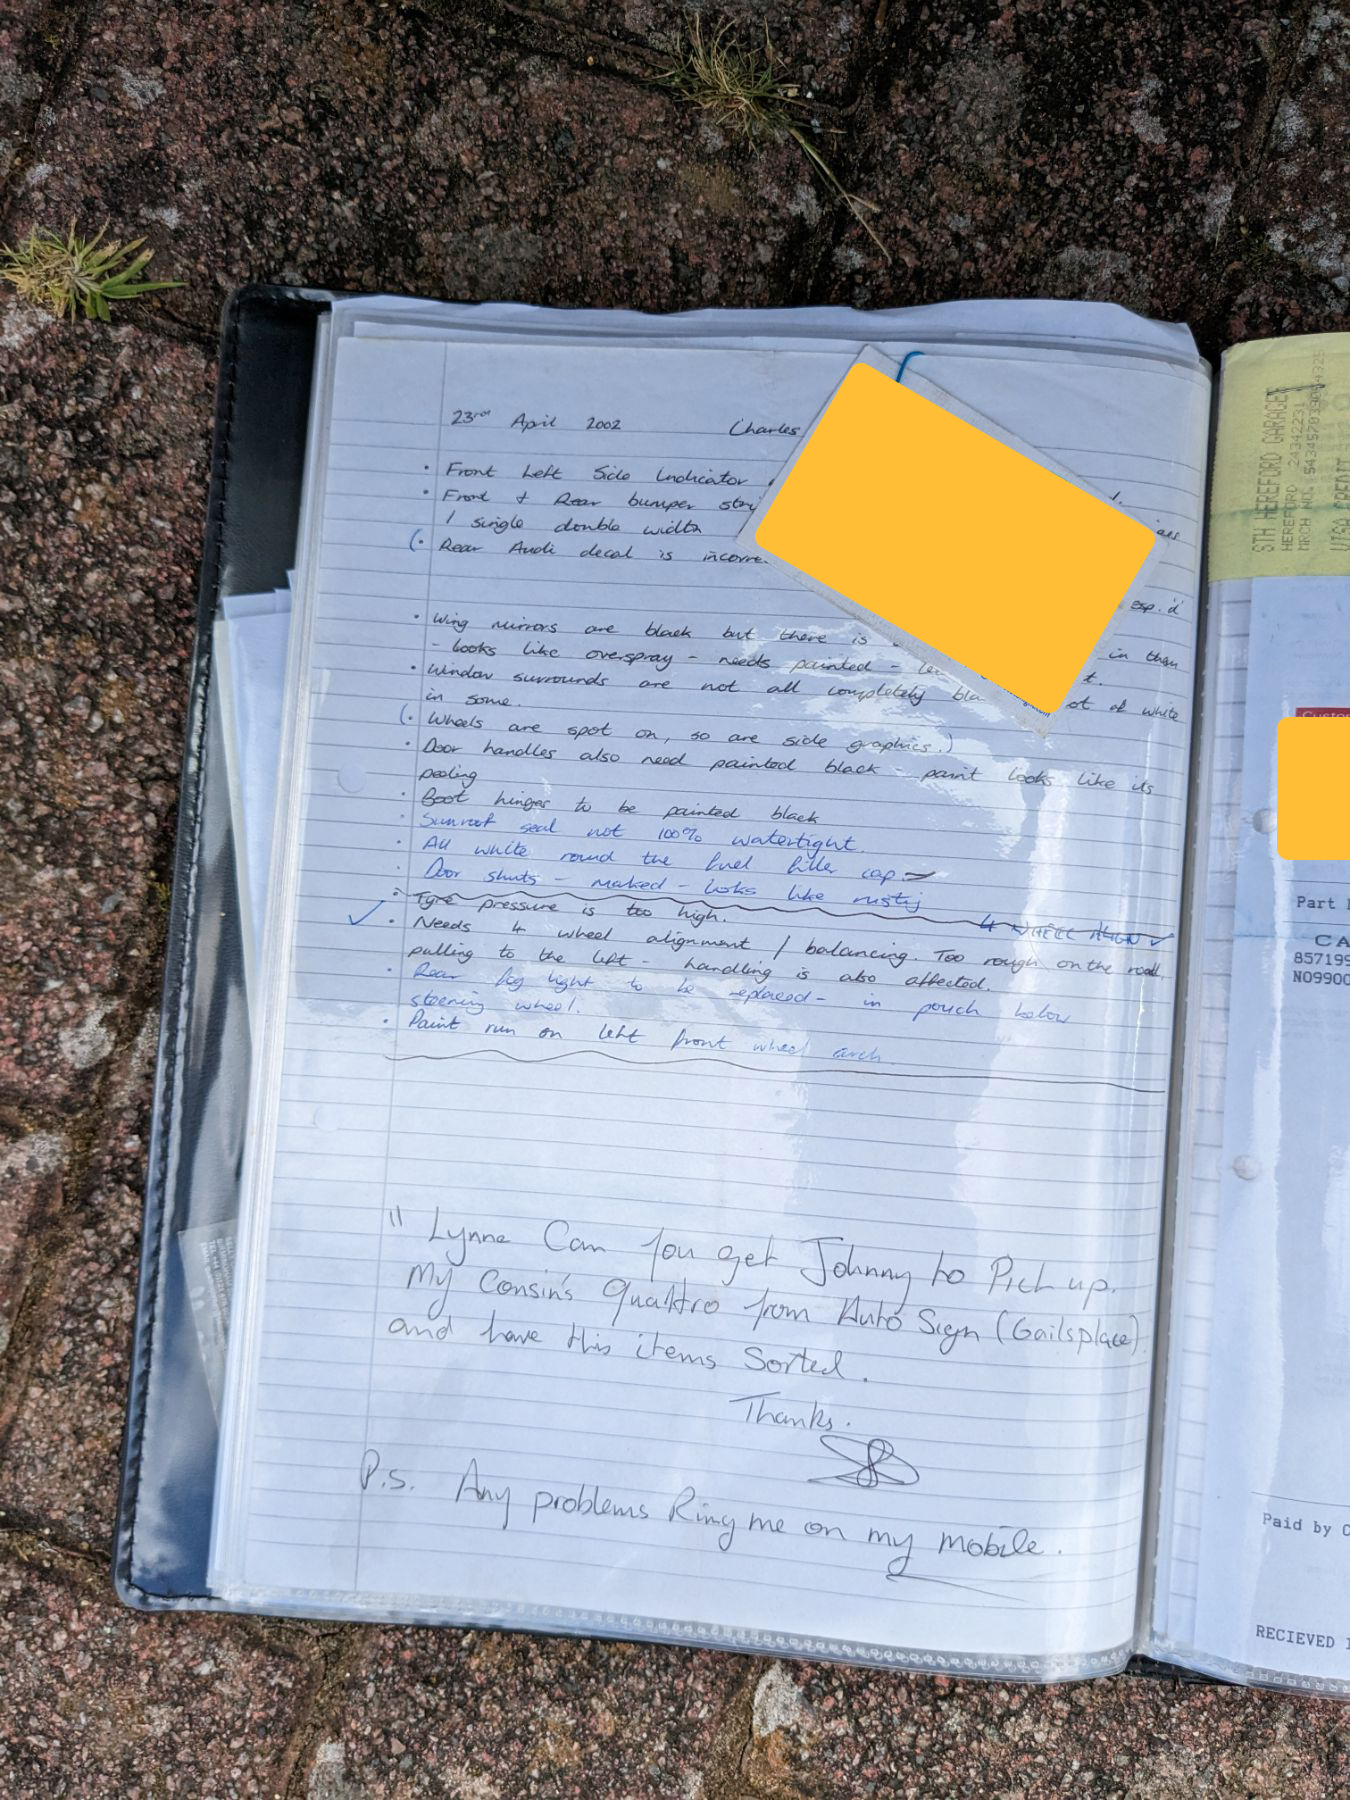 23rd April 2002 Charles
· Front Left Side Indicator
· Front + Rear bumper
1 single double width
(· Rear Audi decal is
esp.
· Wing mirrors are black but there is in them
- looks like overspray - needs painted -
· Window surrounds are not all completely of white
in some.
(· Wheels are spot on, so are side graphics.)
· Door handles also need painted black - paint looks like its
peeling
· Boot hinges to be painted black
· Sunroof seal not 100% watertight.
· All white round the fuel filler cap.
· Door shuts - maked - looks like rusting
· Tyre pressure is too high.
4 WHEEL ALIGN ✓
✓ · Needs 4 wheel alignment / balancing. Too rough on the road.
pulling to the left - handling is also affected.
· Rear fog light to be replaced - in pouch below
steering wheel.
· Paint run on left front wheel arch
" Lynne Can you get Johnny to Pick up.
My Cousin's Quattro from Auto Sign (Gailsplace)
and have this items Sorted.
Thanks.
P.s. Any problems Ring me on my mobile.
STH HEREFORD GARAGE
HEREFORD 24342231
MRCH NO.
VISA CREDIT
Part
CA
857199
N09900
Paid by C
RECIEVED